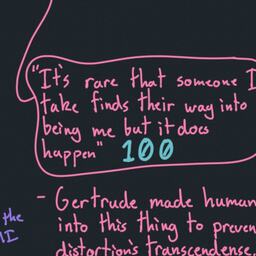 "It's rare that someone I
take finds their way into
being me but it does
happen" 100
- Gertrude made human
the
into this thing to preven
MI
distortion's transcendense.